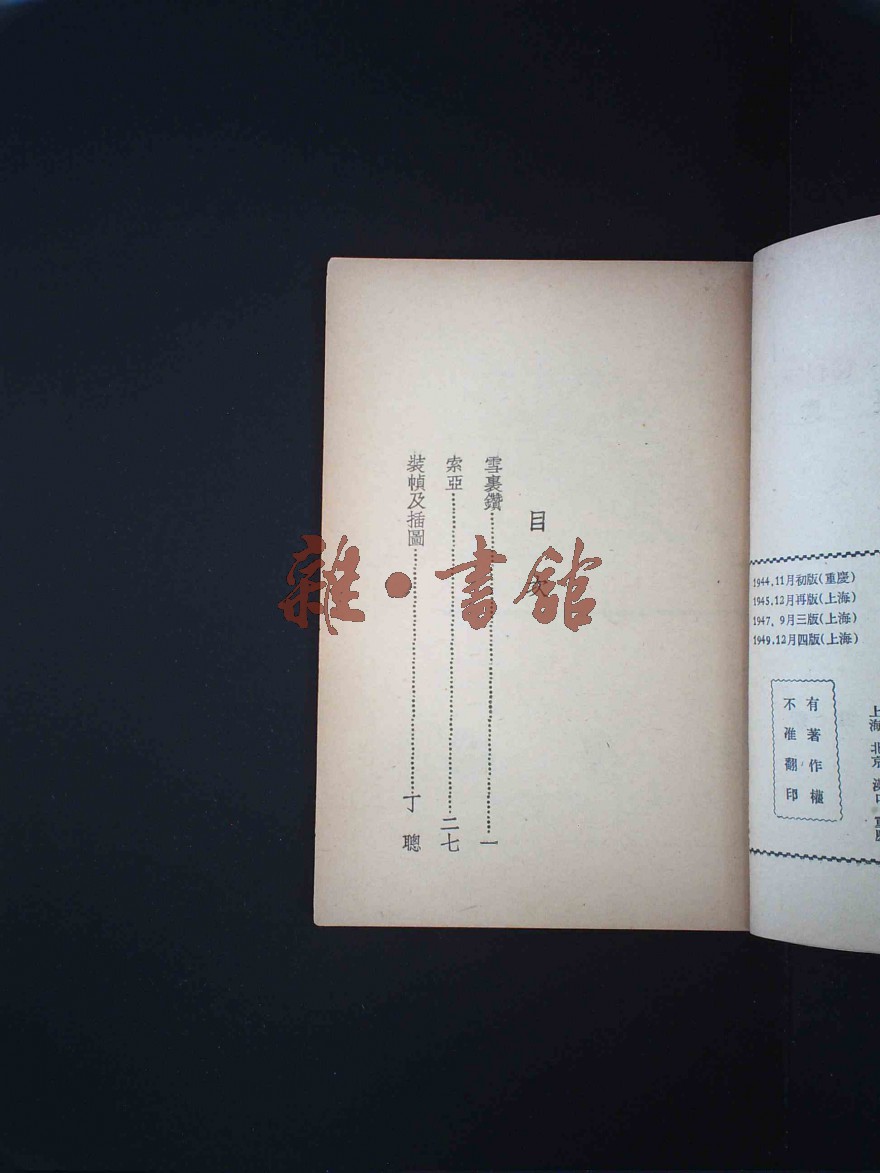 目次
雪裏鑽一
索亞二七
裝幀及插圖丁聰
雜·書館
1944.11月初版(重慶)
1945.12月再版(上海)
1947. 9月三版(上海)
1949.12月四版(上海)
有著作權
不准翻印
上海 北京 漢口 重慶